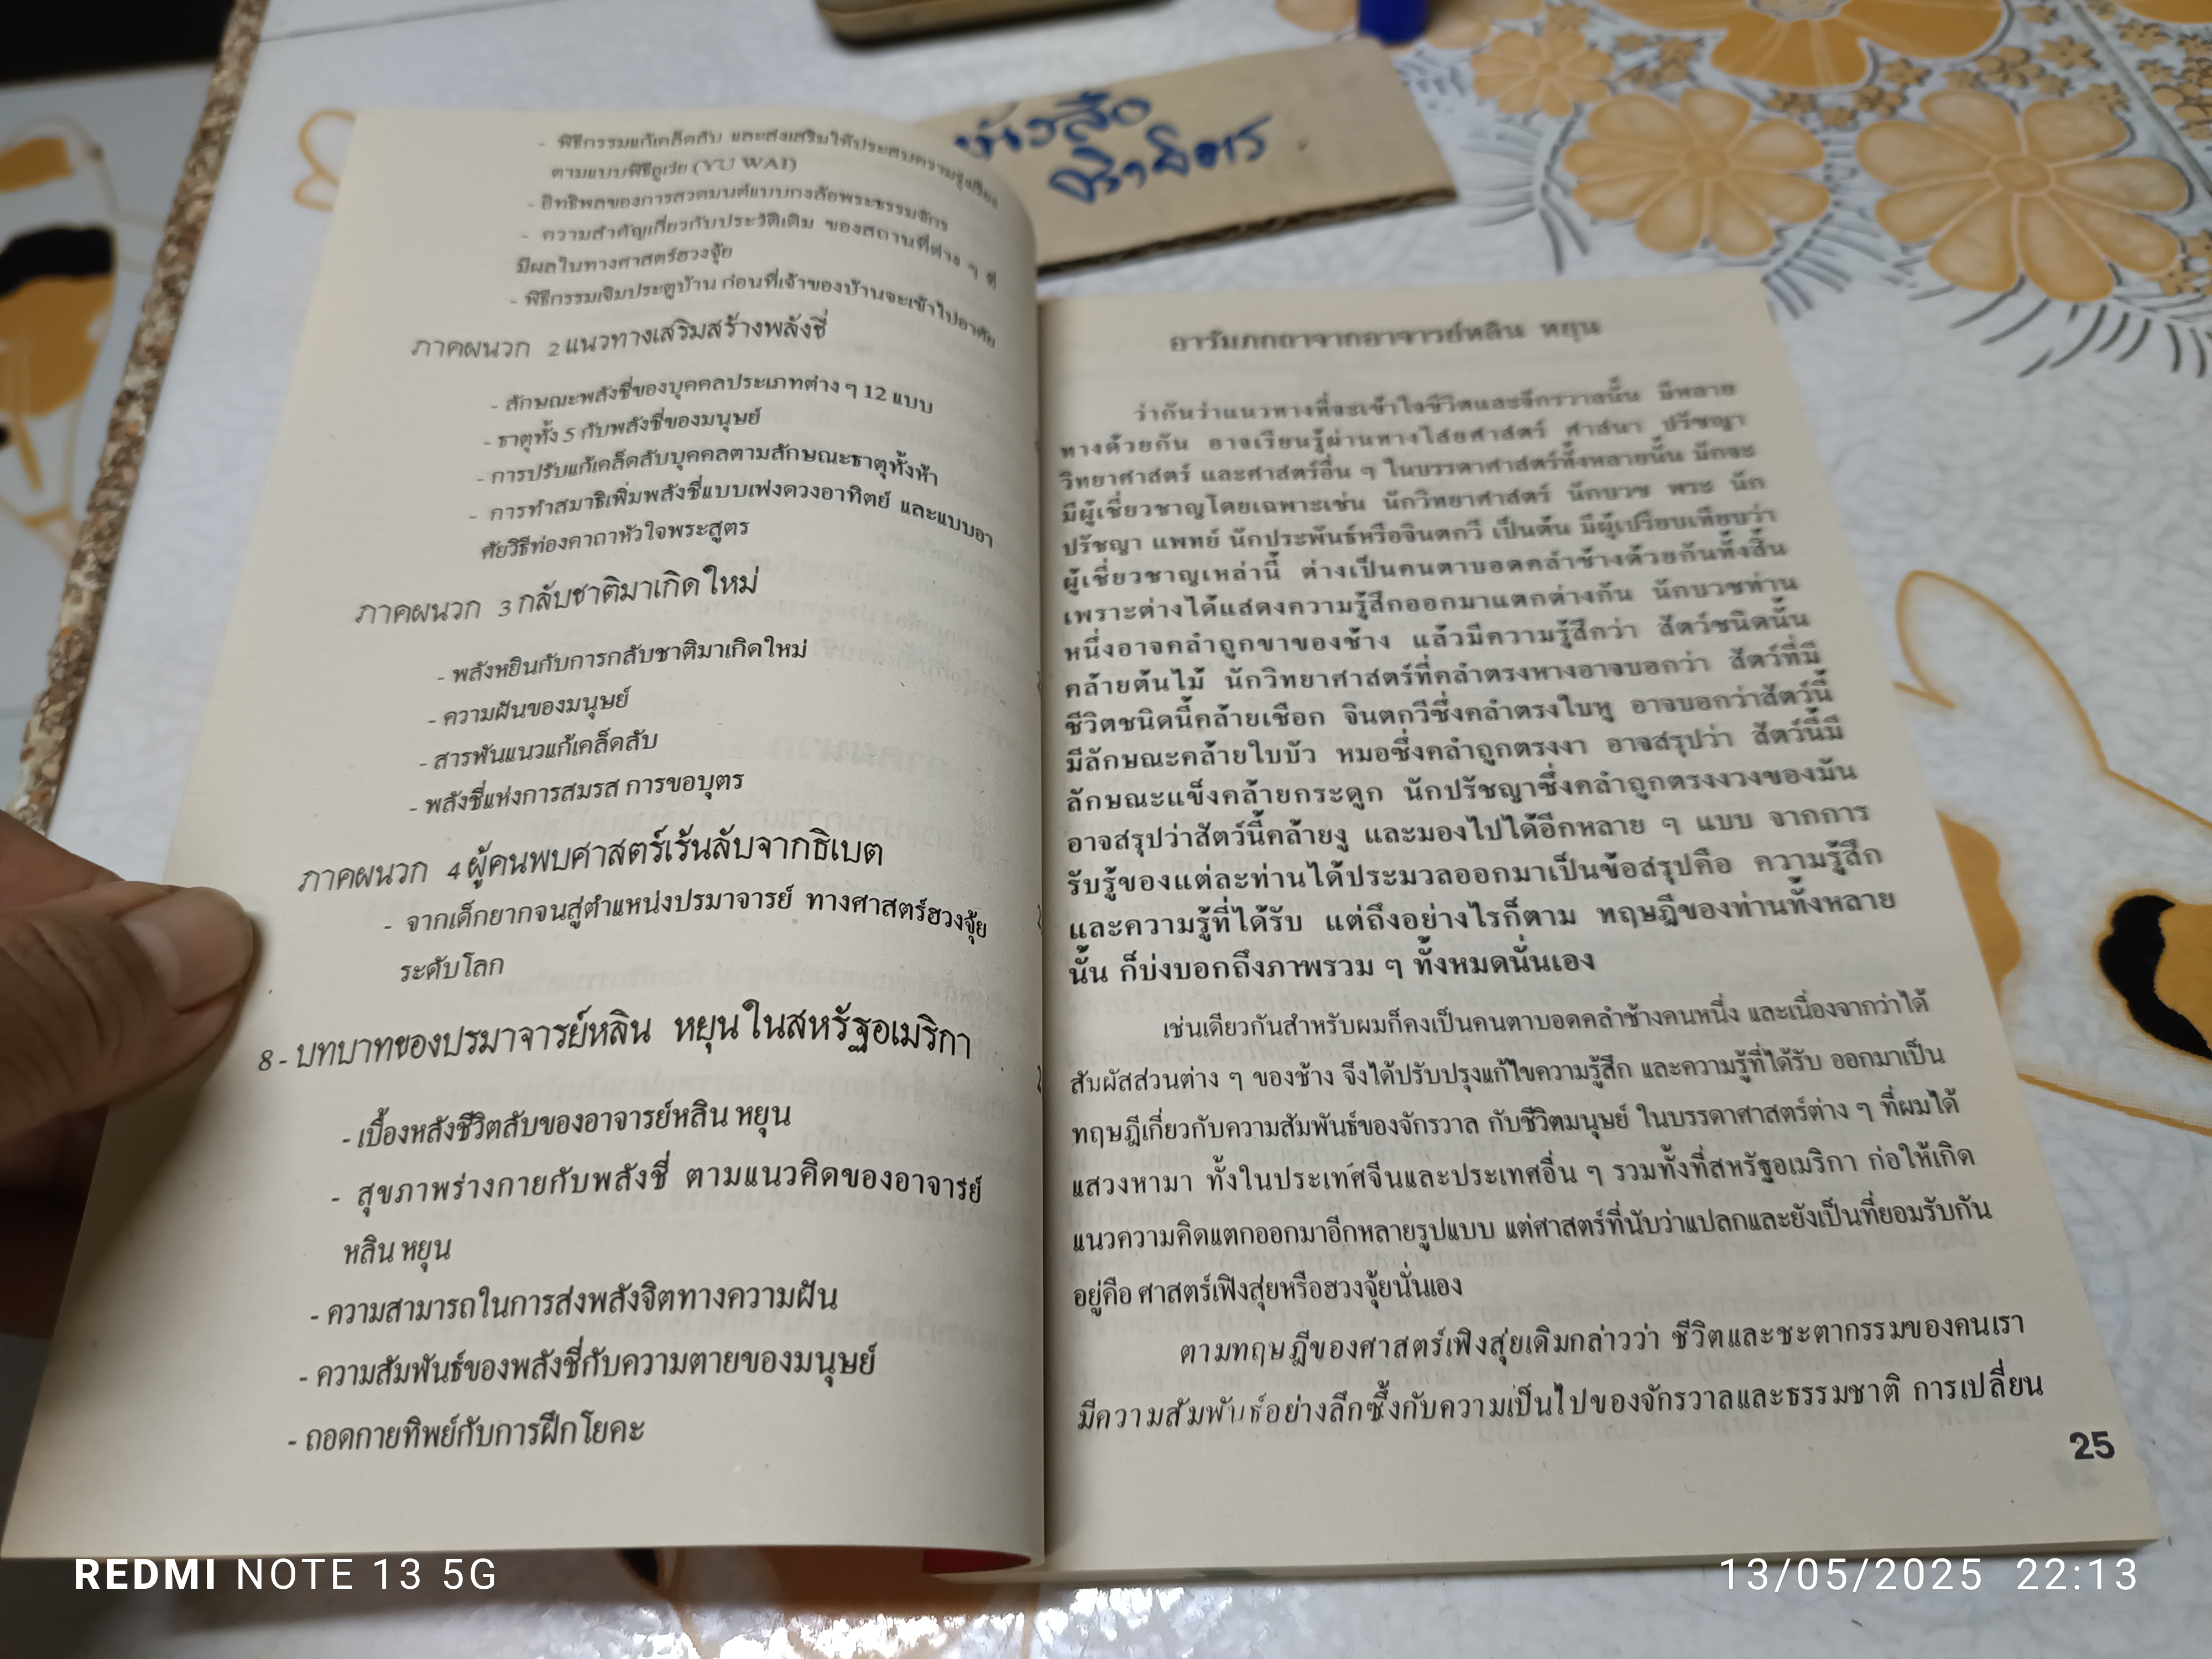 หนังสือ
- พิธีกรรมแก้เคล็ดลับ และส่งเสริมให้ประสบความรุ่งเรือง
ตามแบบพิธียูเว่ย (YU WAI)
- อิทธิพลของการสวดมนต์แบบกงล้อพระธรรมจักร
- ความสำคัญเกี่ยวกับประวัติเดิม ของสถานที่ต่าง ๆ ที่
มีผลในทางศาสตร์ฮวงจุ้ย
- พิธีกรรมเจิมประตูบ้าน ก่อนที่เจ้าของบ้านจะเข้าไปอาศัย
ภาคผนวก 2 แนวทางเสริมสร้างพลังชี่
- ลักษณะพลังชี่ของบุคคลประเภทต่าง ๆ 12 แบบ
- ธาตุทั้ง 5 กับพลังชี่ของมนุษย์
- การปรับแก้เคล็ดลับบุคคลตามลักษณะธาตุทั้งห้า
- การทำสมาธิเพิ่มพลังชี่แบบเพ่งดวงอาทิตย์ และแบบอา
ศัยวิธีท่องคาถาหัวใจพระสูตร
ภาคผนวก 3 กลับชาติมาเกิดใหม่
- พลังหยินกับการกลับชาติมาเกิดใหม่
- ความฝันของมนุษย์
- สารพันแนวแก้เคล็ดลับ
- พลังชี่แห่งการสมรส การขอบุตร
ภาคผนวก 4 ผู้คนพบศาสตร์เร้นลับจากธิเบต
- จากเด็กยากจนสู่ตำแหน่งปรมาจารย์ ทางศาสตร์ฮวงจุ้ย
ระดับโลก
8 - บทบาทของปรมาจารย์หลิน หยุน ในสหรัฐอเมริกา
- เบื้องหลังชีวิตลับของอาจารย์หลิน หยุน
- สุขภาพร่างกายกับพลังชี่ ตามแนวคิดของอาจารย์
หลิน หยุน
- ความสามารถในการส่งพลังจิตทางความฝัน
- ความสัมพันธ์ของพลังชี่กับความตายของมนุษย์
- ถอดกายทิพย์กับการฝึกโยคะ
อารัมภกถาจากอาจารย์หลิน หยุน
ว่ากันว่าแนวทางที่จะเข้าใจชีวิตและจักรวาลนั้น มีหลาย
ทางด้วยกัน อาจเรียนรู้ผ่านทางไสยศาสตร์ ศาสนา ปรัชญา
วิทยาศาสตร์ และศาสตร์อื่น ๆ ในบรรดาศาสตร์ทั้งหลายนั้น มักจะ
มีผู้เชี่ยวชาญโดยเฉพาะเช่น นักวิทยาศาสตร์ นักบวช พระ นัก
ปรัชญา แพทย์ นักประพันธ์หรือจินตกวี เป็นต้น มีผู้เปรียบเทียบว่า
ผู้เชี่ยวชาญเหล่านี้ ต่างเป็นคนตาบอดคลำช้างด้วยกันทั้งสิ้น
เพราะต่างได้แสดงความรู้สึกออกมาแตกต่างกัน นักบวชท่าน
หนึ่งอาจคลำถูกขาของช้าง แล้วมีความรู้สึกว่า สัตว์ชนิดนั้น
คล้ายต้นไม้ นักวิทยาศาสตร์ที่คลำตรงหางอาจบอกว่า สัตว์ที่มี
ชีวิตชนิดนี้คล้ายเชือก จินตกวีซึ่งคลำตรงใบหู อาจบอกว่าสัตว์นี้
มีลักษณะคล้ายใบบัว หมอซึ่งคลำถูกตรงงา อาจสรุปว่า สัตว์นี้มี
ลักษณะแข็งคล้ายกระดูก นักปรัชญาซึ่งคลำถูกตรงงวงของมัน
อาจสรุปว่าสัตว์นี้คล้ายงู และมองไปได้อีกหลาย ๆ แบบ จากการ
รับรู้ของแต่ละท่านได้ประมวลออกมาเป็นข้อสรุปคือ ความรู้สึก
และความรู้ที่ได้รับ แต่ถึงอย่างไรก็ตาม ทฤษฎีของท่านทั้งหลาย
นั้น ก็บ่งบอกถึงภาพรวม ๆ ทั้งหมดนั่นเอง
เช่นเดียวกันสำหรับผมก็คงเป็นคนตาบอดคลำช้างคนหนึ่ง และเนื่องจากว่าได้
สัมผัสส่วนต่าง ๆ ของช้าง จึงได้ปรับปรุงแก้ไขความรู้สึก และความรู้ที่ได้รับ ออกมาเป็น
ทฤษฎีเกี่ยวกับความสัมพันธ์ของจักรวาล กับชีวิตมนุษย์ ในบรรดาศาสตร์ต่าง ๆ ที่ผมได้
แสวงหามา ทั้งในประเทศจีนและประเทศอื่น ๆ รวมทั้งที่สหรัฐอเมริกา ก่อให้เกิด
แนวความคิดแตกออกมาอีกหลายรูปแบบ แต่ศาสตร์ที่นับว่าแปลกและยังเป็นที่ยอมรับกัน
อยู่คือ ศาสตร์เฟิงสุ่ยหรือฮวงจุ้ยนั่นเอง
ตามทฤษฎีของศาสตร์เฟิงสุ่ยเดิมกล่าวว่า ชีวิตและชะตากรรมของคนเรา
มีความสัมพันธ์อย่างลึกซึ้งกับความเป็นไปของจักรวาลและธรรมชาติ การเปลี่ยน
25
REDMI NOTE 13 5G
13/05/2025 22:13